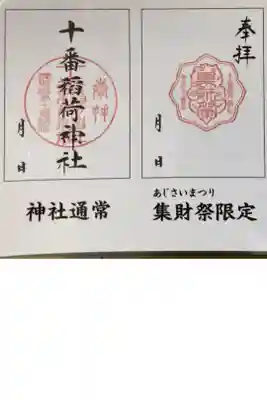 奉拝
月 日
あじさいまつり
集財祭限定
十番稲荷神社
月 日
神社通常